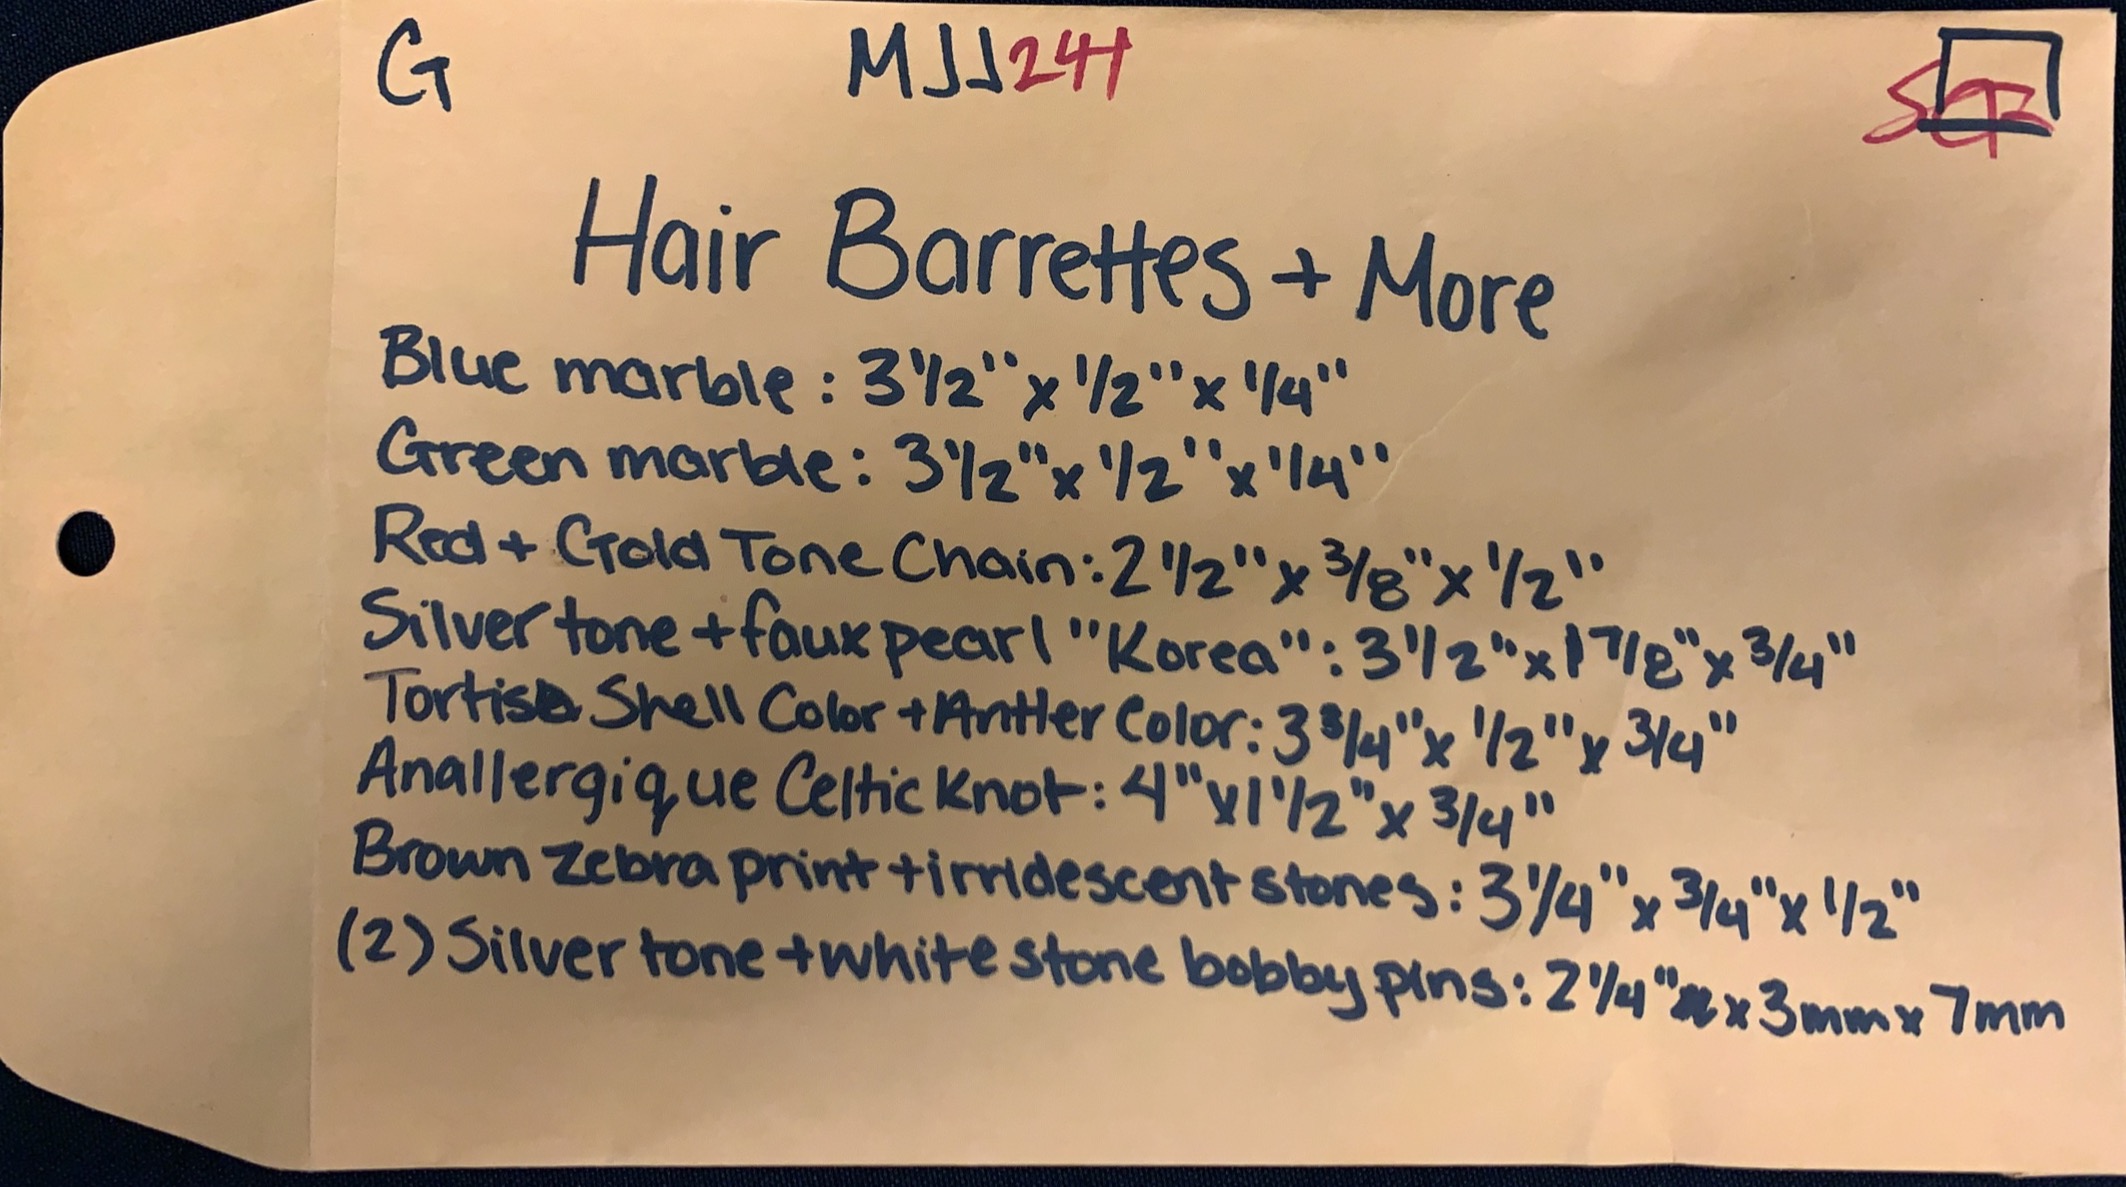 G MJJ241
Hair Barrettes + More
Blue marble: 3 1/2" x 1/2" x 1/4"
Green marble: 3 1/2" x 1/2" x 1/4"
Red + Gold Tone Chain: 2 1/2" x 3/8" x 1/2"
Silver tone + faux pearl "Korea": 3 1/2" x 1 7/8" x 3/4"
Tortise Shell Color + Antler Color: 3 3/4" x 1/2" x 3/4"
Anallergique Celtic Knot: 4" x 1 1/2" x 3/4"
Brown Zebra print + irridescent stones: 3 1/4" x 3/4" x 1/2"
(2) Silver tone + white stone bobby pins: 2 1/4" x 3mm x 7mm